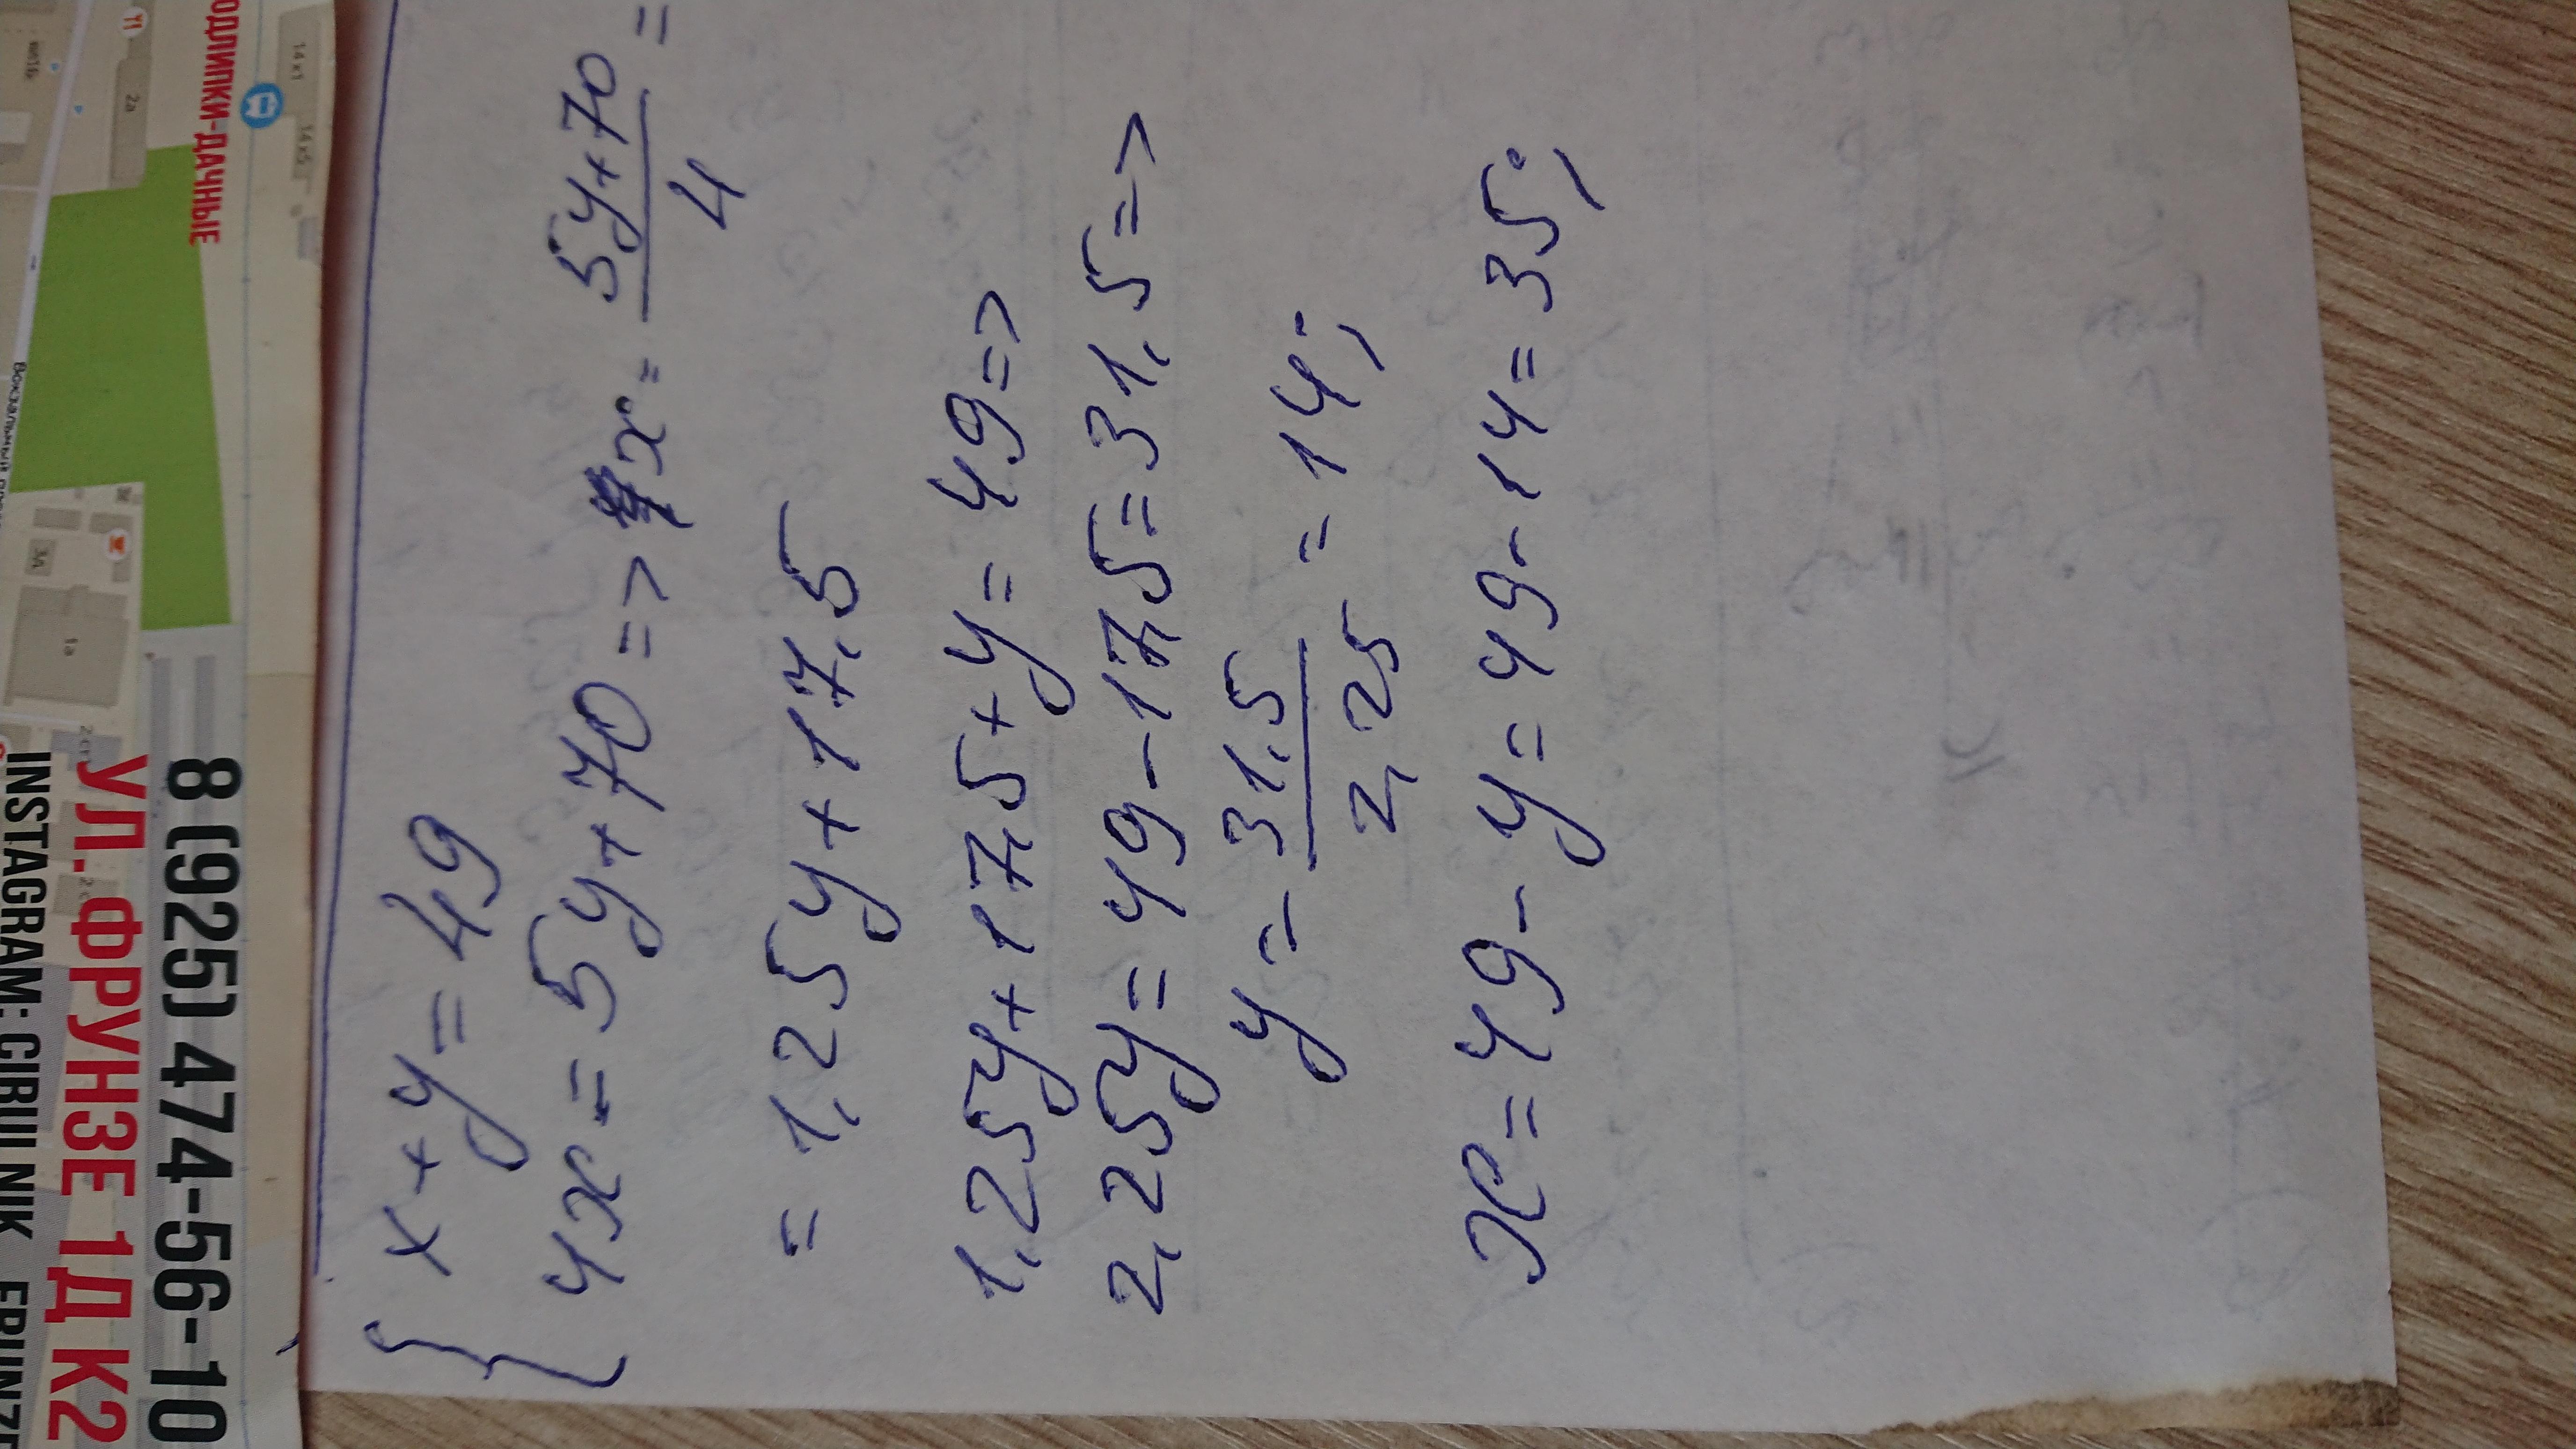 ОДЛИПКИ-ДАЧНЫЕ
14 к1
14 к5
2а
3А
1а
8 (925) 474-56-10
УЛ. ФРУНЗЕ 1Д К2
x + y = 49
4x = 5y + 70 => x = 5y+70 / 4 =
= 1,25y + 17,5
1,25y + 17,5 + y = 49 =>
2,25y = 49 - 17,5 = 31,5 =>
y = 31,5 / 2,25 = 14;
x = 49 - y = 49 - 14 = 35;